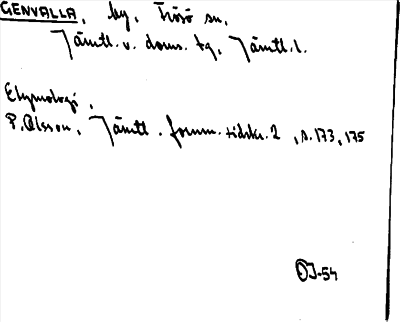 GENVALLA, by, Frösö sn,
Jämtl. v. doms. tg, Jämtl. l.
Etymologi,
P. Olsson, Jämtl. fornm. tidskr. 2, s. 173, 175
OJ-54